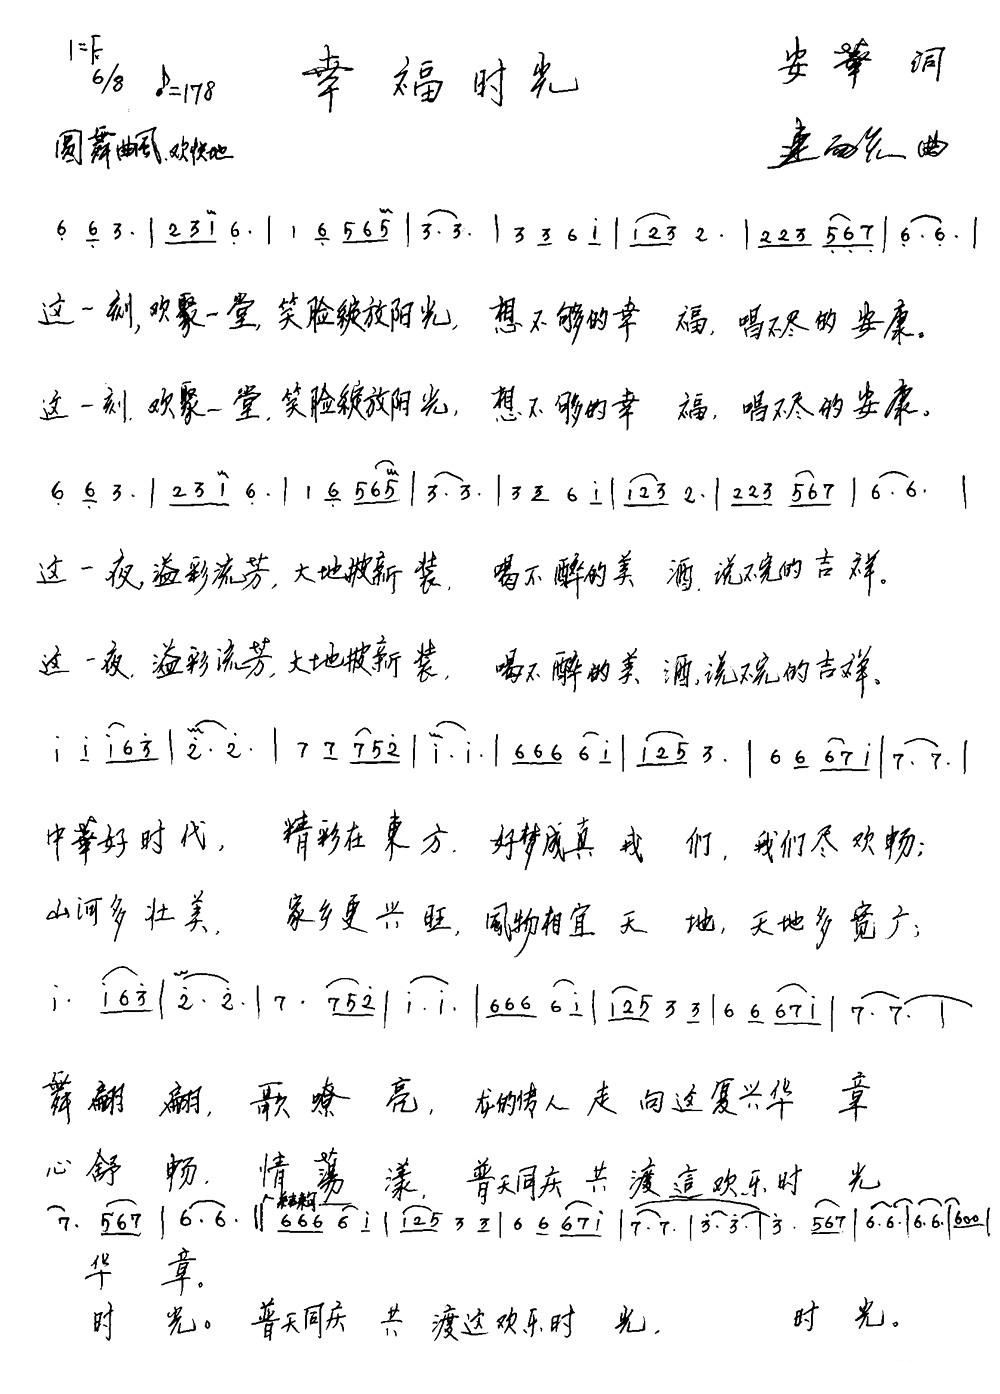 1=F
6/8 ♪=178 幸福时光 安華 词
圆舞曲风.欢快地 曲
6 6 3. | 2 3 1 6. | 1 6 5 6 5 | 3. 3. | 3 3 6 i | i 2 3 2. | 2 2 3 5 6 7 | 6. 6. |
这一刻,欢聚一堂,笑脸绽放阳光, 想不够的幸 福,唱不尽的安康。
这一刻.欢聚一堂.笑脸绽放阳光, 想不够的幸 福,唱不尽的安康。
6 6 3. | 2 3 1 6. | 1 6 5 6 5 | 3. 3. | 3 3 6 i | i 2 3 2. | 2 2 3 5 6 7 | 6. 6. |
这一夜,溢彩流芳,大地披新装, 喝不醉的美 酒,说不完的吉祥。
这一夜.溢彩流芳,大地披新装, 喝不醉的美 酒,说不完的吉祥。
i i i 6 3 | 2. 2. | 7 7 7 5 2 | i. i. | 6 6 6 6 i | i 2 5 3. | 6 6 6 7 i | 7. 7. |
中華好时代, 精彩在東方. 好梦成真我 们,我们尽欢畅;
山河多壮美, 家乡更兴旺,風物相宜天 地,天地多宽广;
i. i 6 3 | 2. 2. | 7. 7 5 2 | i. i. | 6 6 6 6 i | i 2 5 3 3 | 6 6 6 7 i | 7. 7. |
舞翩 翩, 歌嘹 亮, 龙的传人走 向这复兴华 章
心舒 畅. 情荡 漾, 普天同庆共 渡這欢乐时 光
7. 5 6 7 | 6. 6. :‖ 6 6 6 6 i | i 2 5 3 3 | 6 6 6 7 i | 7. 7. | 3. 3. | 3. 5 6 7 | 6. 6. | 6. 6. | 6 0 0 |
华 章。
时 光。 普天同庆 共 渡这欢乐时 光, 时 光。